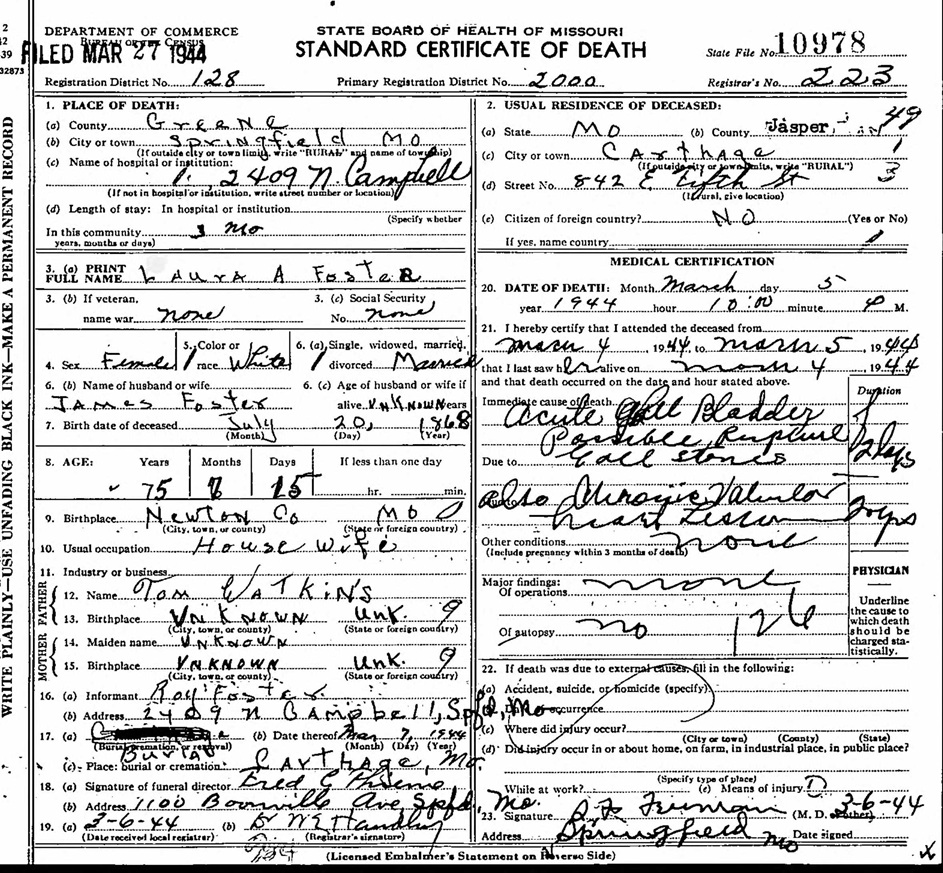 DEPARTMENT OF COMMERCE
BUREAU OF THE CENSUS
FILED MAR 27 1944
STATE BOARD OF HEALTH OF MISSOURI
STANDARD CERTIFICATE OF DEATH
State File No. 10978
Registration District No. 128
Primary Registration District No. 2000
Registrar's No. 223
WRITE PLAINLY—USE UNFADING BLACK INK—MAKE A PERMANENT RECORD
1. PLACE OF DEATH:
(a) County Greene
(b) City or town Springfield Mo
(If outside city or town limits, write "RURAL" and name of township)
(c) Name of hospital or institution:
2409 N. Campbell
(If not in hospital or institution, write street number or location)
(d) Length of stay: In hospital or institution
(Specify whether
In this community Mo
years, months or days)
3. (a) PRINT FULL NAME Laura A Foster
3. (b) If veteran, name war none
3. (c) Social Security No. none
4. Sex Female
5. Color or race White
6. (a) Single, widowed, married, divorced Married
6. (b) Name of husband or wife
James Foster
6. (c) Age of husband or wife if alive UNKNOWN years
7. Birth date of deceased July 20, 1868
(Month) (Day) (Year)
8. AGE: Years Months Days If less than one day
75 15 hr. min.
9. Birthplace Newton Co Mo
(City, town, or county) (State or foreign country)
10. Usual occupation House wife
11. Industry or business
FATHER
12. Name Tom Watkins
13. Birthplace UNKNOWN Unk. 9
(City, town, or county) (State or foreign country)
MOTHER
14. Maiden name UNKNOWN
15. Birthplace UNKNOWN Unk. 9
(City, town, or county) (State or foreign country)
16. (a) Informant Roy Foster
(b) Address 2409 N Campbell, Spfd, Mo
17. (a) Burial (b) Date thereof Mar 7, 1944
(Burial, cremation, or removal) (Month) (Day) (Year)
(c) Place: burial or cremation Carthage, Mo.
18. (a) Signature of funeral director Fred C
(b) Address 1100 Boonville Ave, Spfd, Mo.
19. (a) 3-6-44 (b) Dr W E Handley
(Date received local registrar) (Registrar's signature)
2. USUAL RESIDENCE OF DECEASED:
(a) State Mo (b) County Jasper 49
(c) City or town Carthage 1
(If outside city or town limits, write "RURAL")
(d) Street No. 842 E Fifth St 3
(If rural, give location)
(e) Citizen of foreign country? NO (Yes or No)
If yes, name country
MEDICAL CERTIFICATION
20. DATE OF DEATH: Month March day 5
year 1944 hour 10:00 minute P M.
21. I hereby certify that I attended the deceased from
March 4 1944 to March 5 1944
that I last saw her alive on March 4 1944
and that death occurred on the date and hour stated above.
Duration
Immediate cause of death
Acute Gall Bladder
Possible Rupture
Due to Gall stones 2 days
also Chronic Valvular
heart Lesion 2 yrs
Other conditions none
(Include pregnancy within 3 months of death)
PHYSICIAN
Underline the cause to which death should be charged statistically.
Major findings:
Of operations none
Of autopsy no 126
22. If death was due to external causes, fill in the following:
(a) Accident, suicide, or homicide (specify)
(b) Date of occurrence
(c) Where did injury occur?
(City or town) (County) (State)
(d) Did injury occur in or about home, on farm, in industrial place, in public place?
(Specify type of place)
While at work? (e) Means of injury
23. Signature (M. D. or other)
Address Springfield Mo Date signed 3-6-44
(Licensed Embalmer's Statement on Reverse Side)